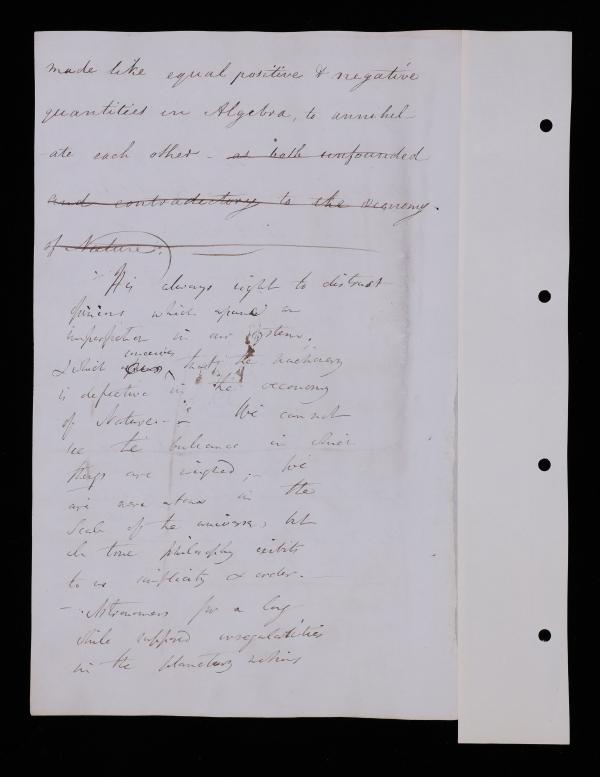 made like equal positive & negative
quantities in Algebra, to annihel-
ate each other - as both unfounded
and contradictory to the œconomy
of Nature.
It is always right to distrust
opinions which upon an
imperfection in our system,
& which conceives that the machinery
is defective in the œconomy
of Nature - We cannot
see the balance in which
things are weighed; - We
are mere atoms in the
Scale of the universe, but
true philosophy exibits
to us simplicity & order. -
- Astronomers for a long
while supposed irregularities
in the planetary motions